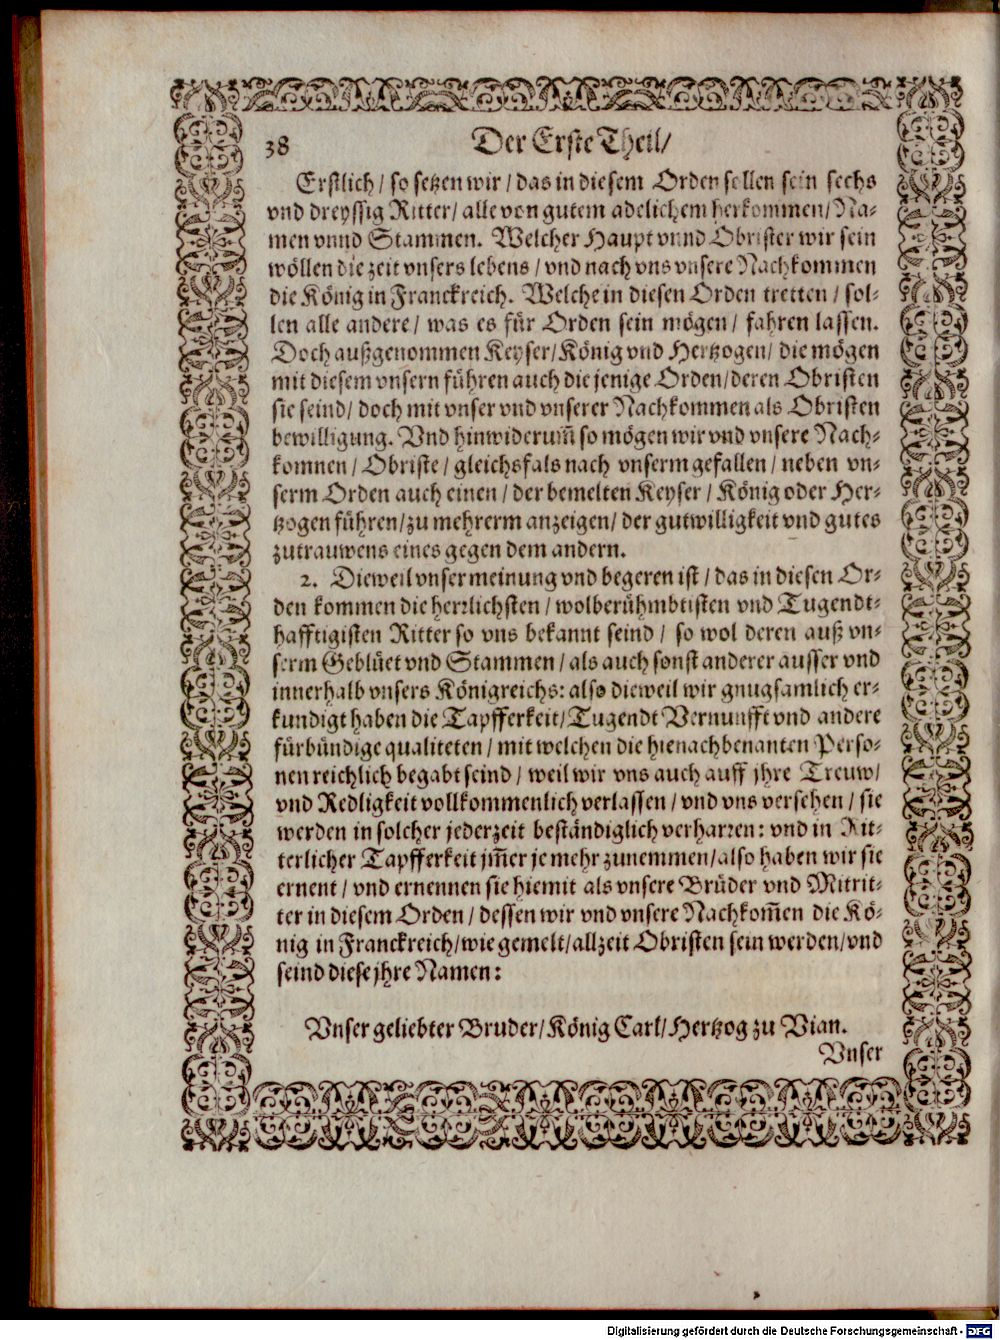 38 Der Erste Theil/
Erstlich / so setzen wir / das in diesem Orden sollen sein sechs
vnd dreyssig Ritter/ alle von gutem adelichem herkommen/ Na-
men vnnd Stammen. Welcher Haupt vnnd Obrister wir sein
wöllen die zeit vnsers lebens / vnd nach vns vnsere Nachkommen
die König in Franckreich. Welche in diesen Orden tretten / sol-
len alle andere / was es für Orden sein mögen / fahren lassen.
Doch außgenommen Keyser/ König vnd Hertzogen/ die mögen
mit diesem vnsern führen auch die jenige Orden/ deren Obristen
sie seind/ doch mit vnser vnd vnserer Nachkommen als Obristen
bewilligung. Vnd hinwiderum̃ so mögen wir vnd vnsere Nach-
komnen / Obriste / gleichsfals nach vnserm gefallen / neben vn-
serm Orden auch einen / der bemelten Keyser / König oder Her-
tzogen führen/ zu mehrerm anzeigen/ der gutwilligkeit vnd gutes
zutrauwens eines gegen dem andern.
2. Dieweil vnser meinung vnd begeren ist / das in diesen Or-
den kommen die herrlichsten / wolberühmbtisten vnd Tugendt-
hafftigisten Ritter so vns bekannt seind / so wol deren auß vn-
serm Geblüet vnd Stammen / als auch sonst anderer ausser vnd
innerhalb vnsers Königreichs: also dieweil wir gnugsamlich er-
kundigt haben die Tapfferkeit/ Tugendt Vernunfft vnd andere
fürbündige qualiteten / mit welchen die hienachbenanten Perso-
nen reichlich begabt seind / weil wir vns auch auff jhre Treuw/
vnd Redligkeit vollkommenlich verlassen / vnd vns versehen / sie
werden in solcher jederzeit beständiglich verharren: vnd in Rit-
terlicher Tapfferkeit jm̃er je mehr zunemmen/ also haben wir sie
ernent / vnd ernennen sie hiemit als vnsere Brüder vnd Mitrit-
ter in diesem Orden / dessen wir vnd vnsere Nachkom̃en die Kö-
nig in Franckreich/ wie gemelt/ allzeit Obristen sein werden/ vnd
seind diese jhre Namen:
Vnser geliebter Bruder/ König Carl/ Hertzog zu Vian.
Vnser
Digitalisierung gefördert durch die Deutsche Forschungsgemeinschaft - DFG